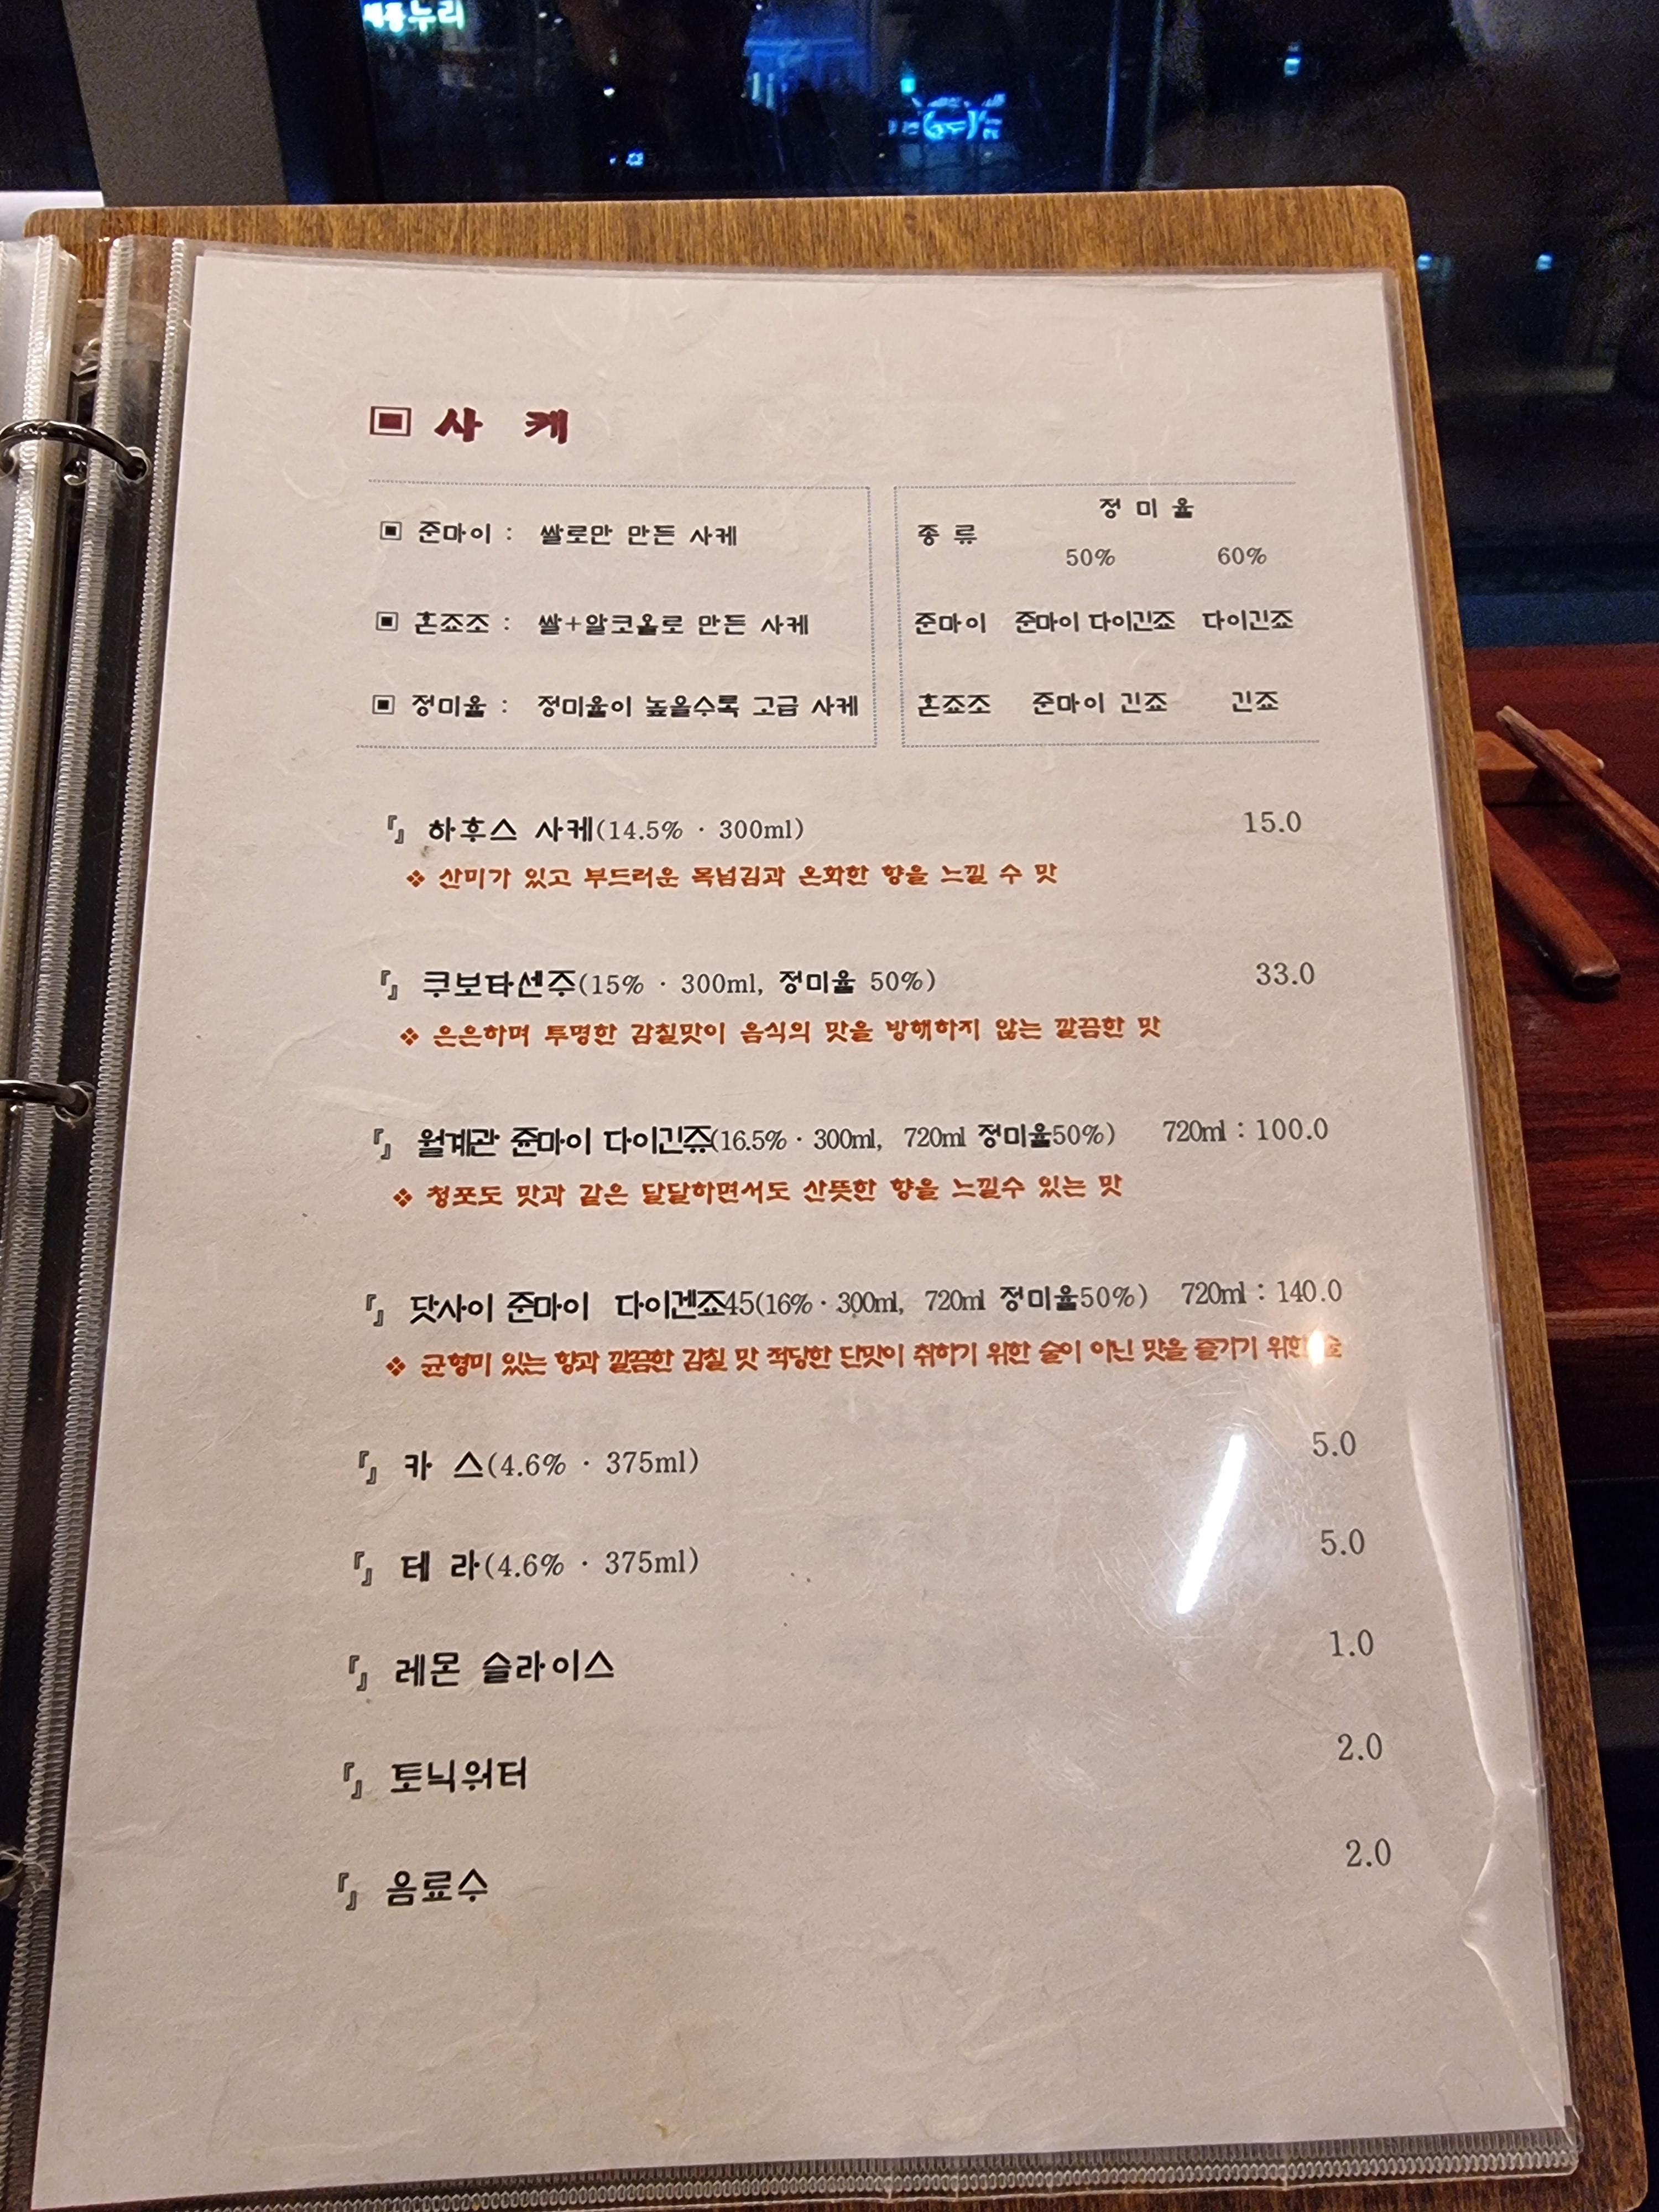 누리
▣ 사 케
▣ 준마이 : 쌀로만 만든 사케
▣ 혼죠조 : 쌀+알코올로 만든 사케
▣ 정미율 : 정미율이 높을수록 고급 사케
종 류 정 미 율
50% 60%
준마이 준마이 다이긴죠 다이긴죠
혼죠조 준마이 긴죠 긴죠
『』 하후스 사케(14.5% · 300ml) 15.0
❖ 산미가 있고 부드러운 목넘김과 온화한 향을 느낄 수 맛
『』 쿠보타센주(15% · 300ml, 정미율 50%) 33.0
❖ 은은하며 투명한 감칠맛이 음식의 맛을 방해하지 않는 깔끔한 맛
『』 월계관 쥰마이 다이긴쥬(16.5% · 300ml, 720ml 정미율50%) 720ml : 100.0
❖ 청포도 맛과 같은 달달하면서도 산뜻한 향을 느낄수 있는 맛
『』 닷사이 준마이 다이겐죠45(16% · 300ml, 720ml 정미율50%) 720ml : 140.0
❖ 균형미 있는 향과 깔끔한 감칠 맛 적당한 단맛이 취하기 위한 술이 아닌 맛을 즐기기 위한 술
『』 카 스(4.6% · 375ml) 5.0
『』 테 라(4.6% · 375ml) 5.0
『』 레몬 슬라이스 1.0
『』 토닉워터 2.0
『』 음료수 2.0